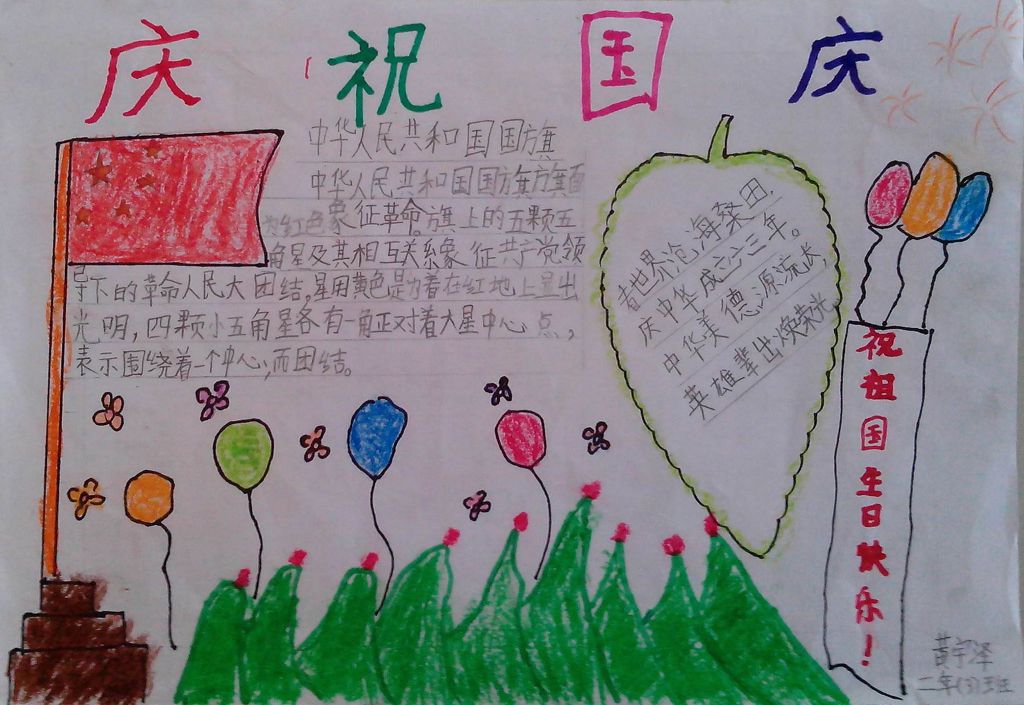 庆祝国庆
中华人民共和国国旗
中华人民共和国国旗旗面
为红色象征革命。旗上的五颗五
角星及其相互关系象征共产党领
导下的革命人民大团结,星用黄色是为着在红地上显出
光明,四颗小五角星各有一角正对着大星中心点,
表示围绕着一个中心,而团结。
看世界沧海桑田,
庆中华成立六三年。
中华美德源流长,
英雄辈出焕荣光
祝祖国生日快乐!
黄宇泽
二年(3)班